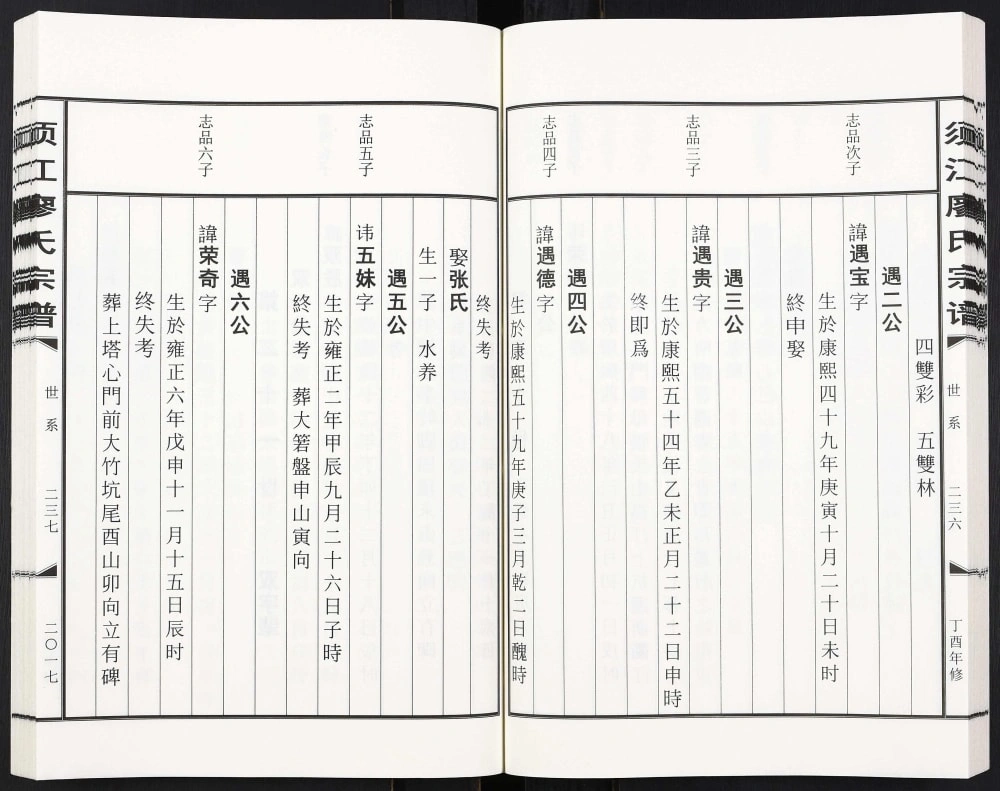 须江廖氏宗谱
世系
二三六
丁酉年修
四雙彩　五雙林
遇二公
志品次子
諱遇宝字
生於康熙四十九年庚寅十月二十日未时
終申娶
遇三公
志品三子
諱遇贵字
生於康熙五十四年乙未正月二十二日申時
终即爲
遇四公
志品四子
諱遇德字
生於康熙五十九年庚子三月乾二日醜時
终失考
娶张氏
生一子　水养
遇五公
志品五子
讳五妹字
生於雍正二年甲辰九月二十六日子時
終失考　葬大箬盤申山寅向
遇六公
志品六子
諱荣奇字
生於雍正六年戊申十一月十五日辰时
终失考
葬上塔心門前大竹坑尾酉山卯向立有碑
须江廖氏宗譜
世系
二三七
二〇一七